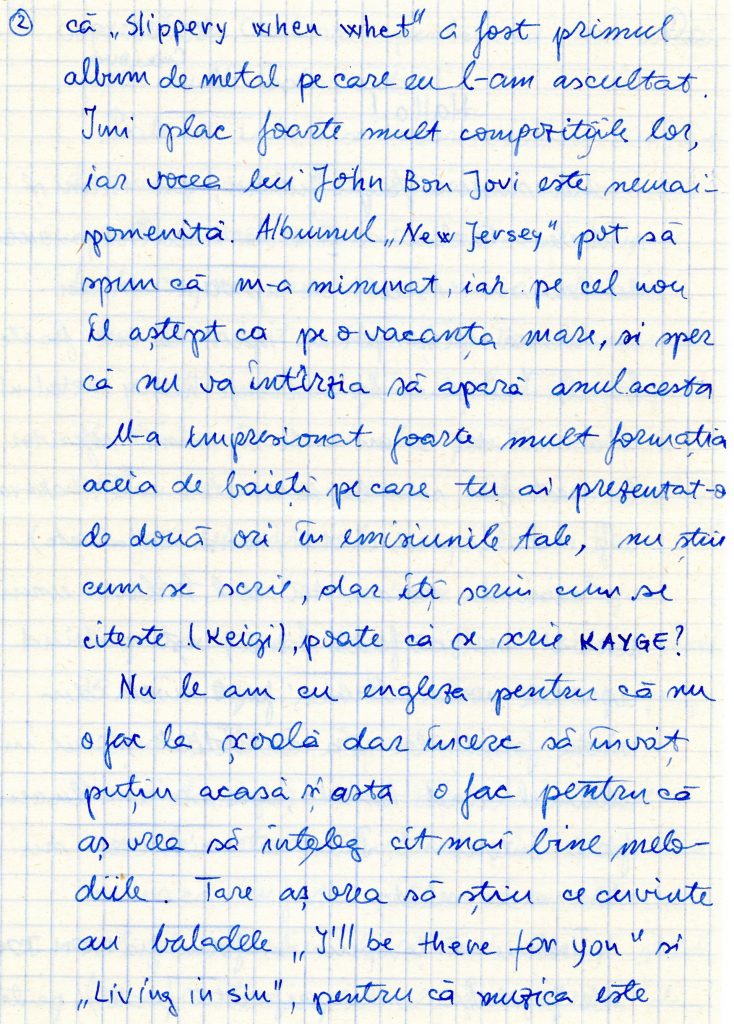 2 că „Slippery when whet" a fost primul
album de metal pe care eu l-am ascultat.
Imi plac foarte mult compozițiile lor,
iar vocea lui John Bon Jovi este nemai-
pomenită. Albumul „New Jersey" pot să
spun că m-a minunat, iar pe cel nou
îl aștept ca pe o vacanța mare, si sper
că nu va întîrzia să apară anul acesta
M-a impresionat foarte mult formația
aceia de băieți pe care tu ai prezentat-o
de două ori în emisiunile tale, nu știu
cum se scrie, dar îți scriu cum se
citeste (Keigi), poate că se scrie KAYGE?
Nu le am cu engleza pentru că nu
o fac la școală dar încerc să învăț
puțin acasă și asta o fac pentru că
aș vrea să înțeleg cît mai bine melo-
diile. Tare aș vrea să știu ce cuvinte
au baladele „I'll be there for you" si
„Living in sin", pentru că muzica este